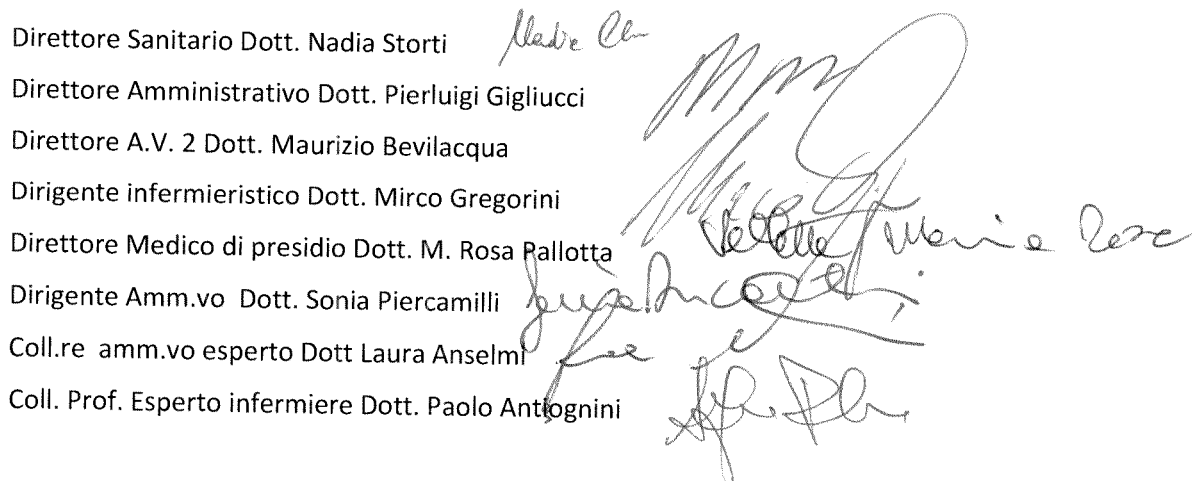 Direttore Sanitario Dott. Nadia Storti
Direttore Amministrativo Dott. Pierluigi Gigliucci
Direttore A.V. 2 Dott. Maurizio Bevilacqua
Dirigente infermieristico Dott. Mirco Gregorini
Direttore Medico di presidio Dott. M. Rosa Pallotta
Dirigente Amm.vo Dott. Sonia Piercamilli
Coll.re amm.vo esperto Dott Laura Anselmi
Coll. Prof. Esperto infermiere Dott. Paolo Antognini